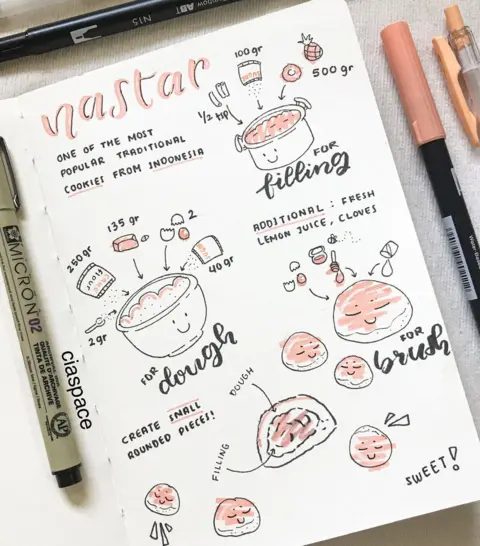 nastar
ONE OF THE MOST
POPULAR TRADITIONAL
COOKIES FROM INDONESIA
100 gr
500 gr
1/2 tsp
FOR
filling
ADDITIONAL : FRESH
LEMON JUICE, CLOVES
135 gr
2
250 gr
flour
40 gr
2 gr
FOR
dough
FOR
brush
CREATE SMALL
ROUNDED PIECES!
DOUGH
FILLING
SWEET!
ciaspace
MICRON 02
N15
ABT
AP